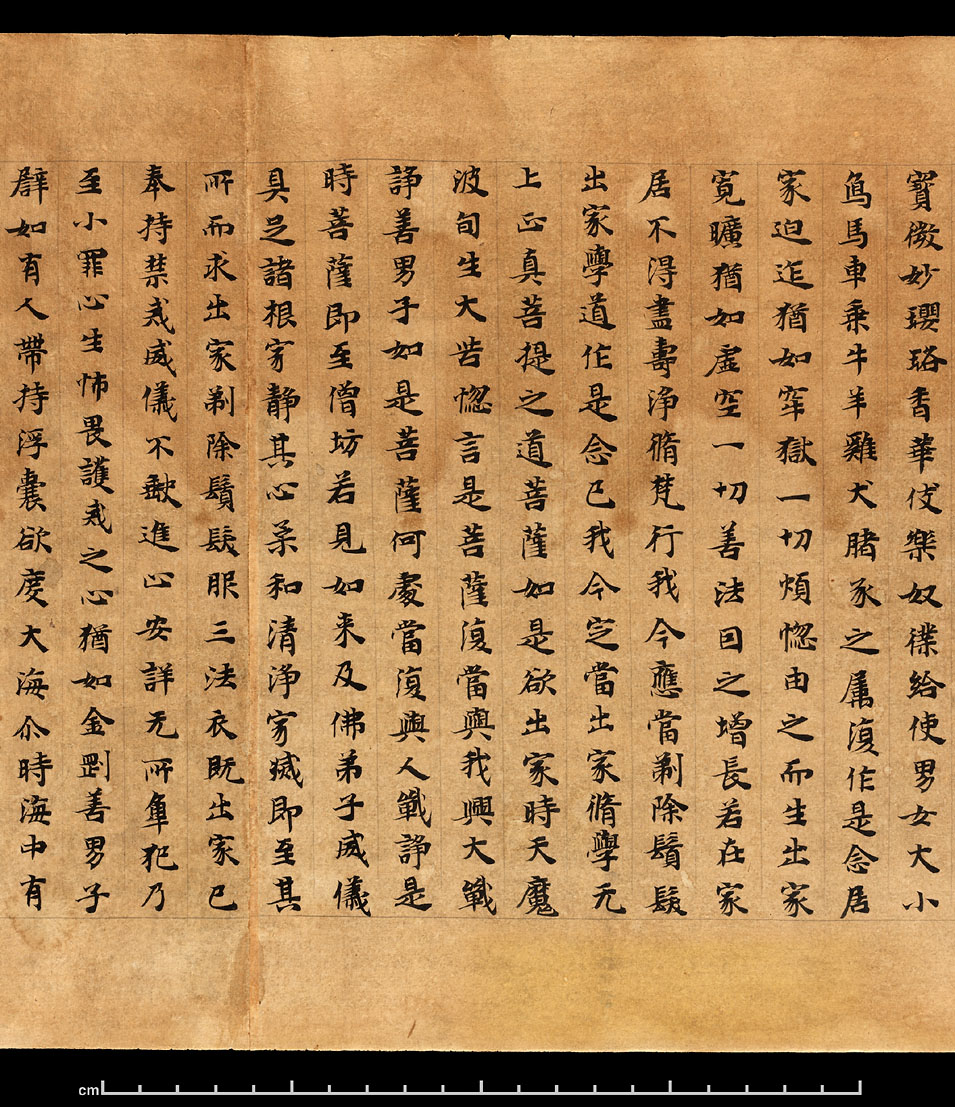 寶微妙瓔珞香華伎樂奴僕給使男女大小
烏馬車乗牛羊雞犬賭豕之属復作是念居
家迫迮猶如牢獄一切煩惚由之而生出家
寛曠猶如虚空一切善法因之増長若在家
居不淂盡壽浄脩梵行我今應當剃除鬚髮
出家學道作是念已我今定當出家脩學无
上正真菩提之道菩薩如是欲出家時天魔
波旬生大苦惚言是菩薩復當與我興大戰
諍善男子如是菩薩何處當復與人戰諍是
時菩薩即至僧坊若見如来及佛弟子威儀
具足諸根寂靜其心柔和清浄寂滅即至其
所而求出家剃除鬚髮服三法衣既出家已
奉持禁戒威儀不缺進止安詳无所觸犯乃
至小罪心生怖畏護戒之心猶如金剛善男子
辟如有人帶持浮囊欲度大海尒時海中有
cm